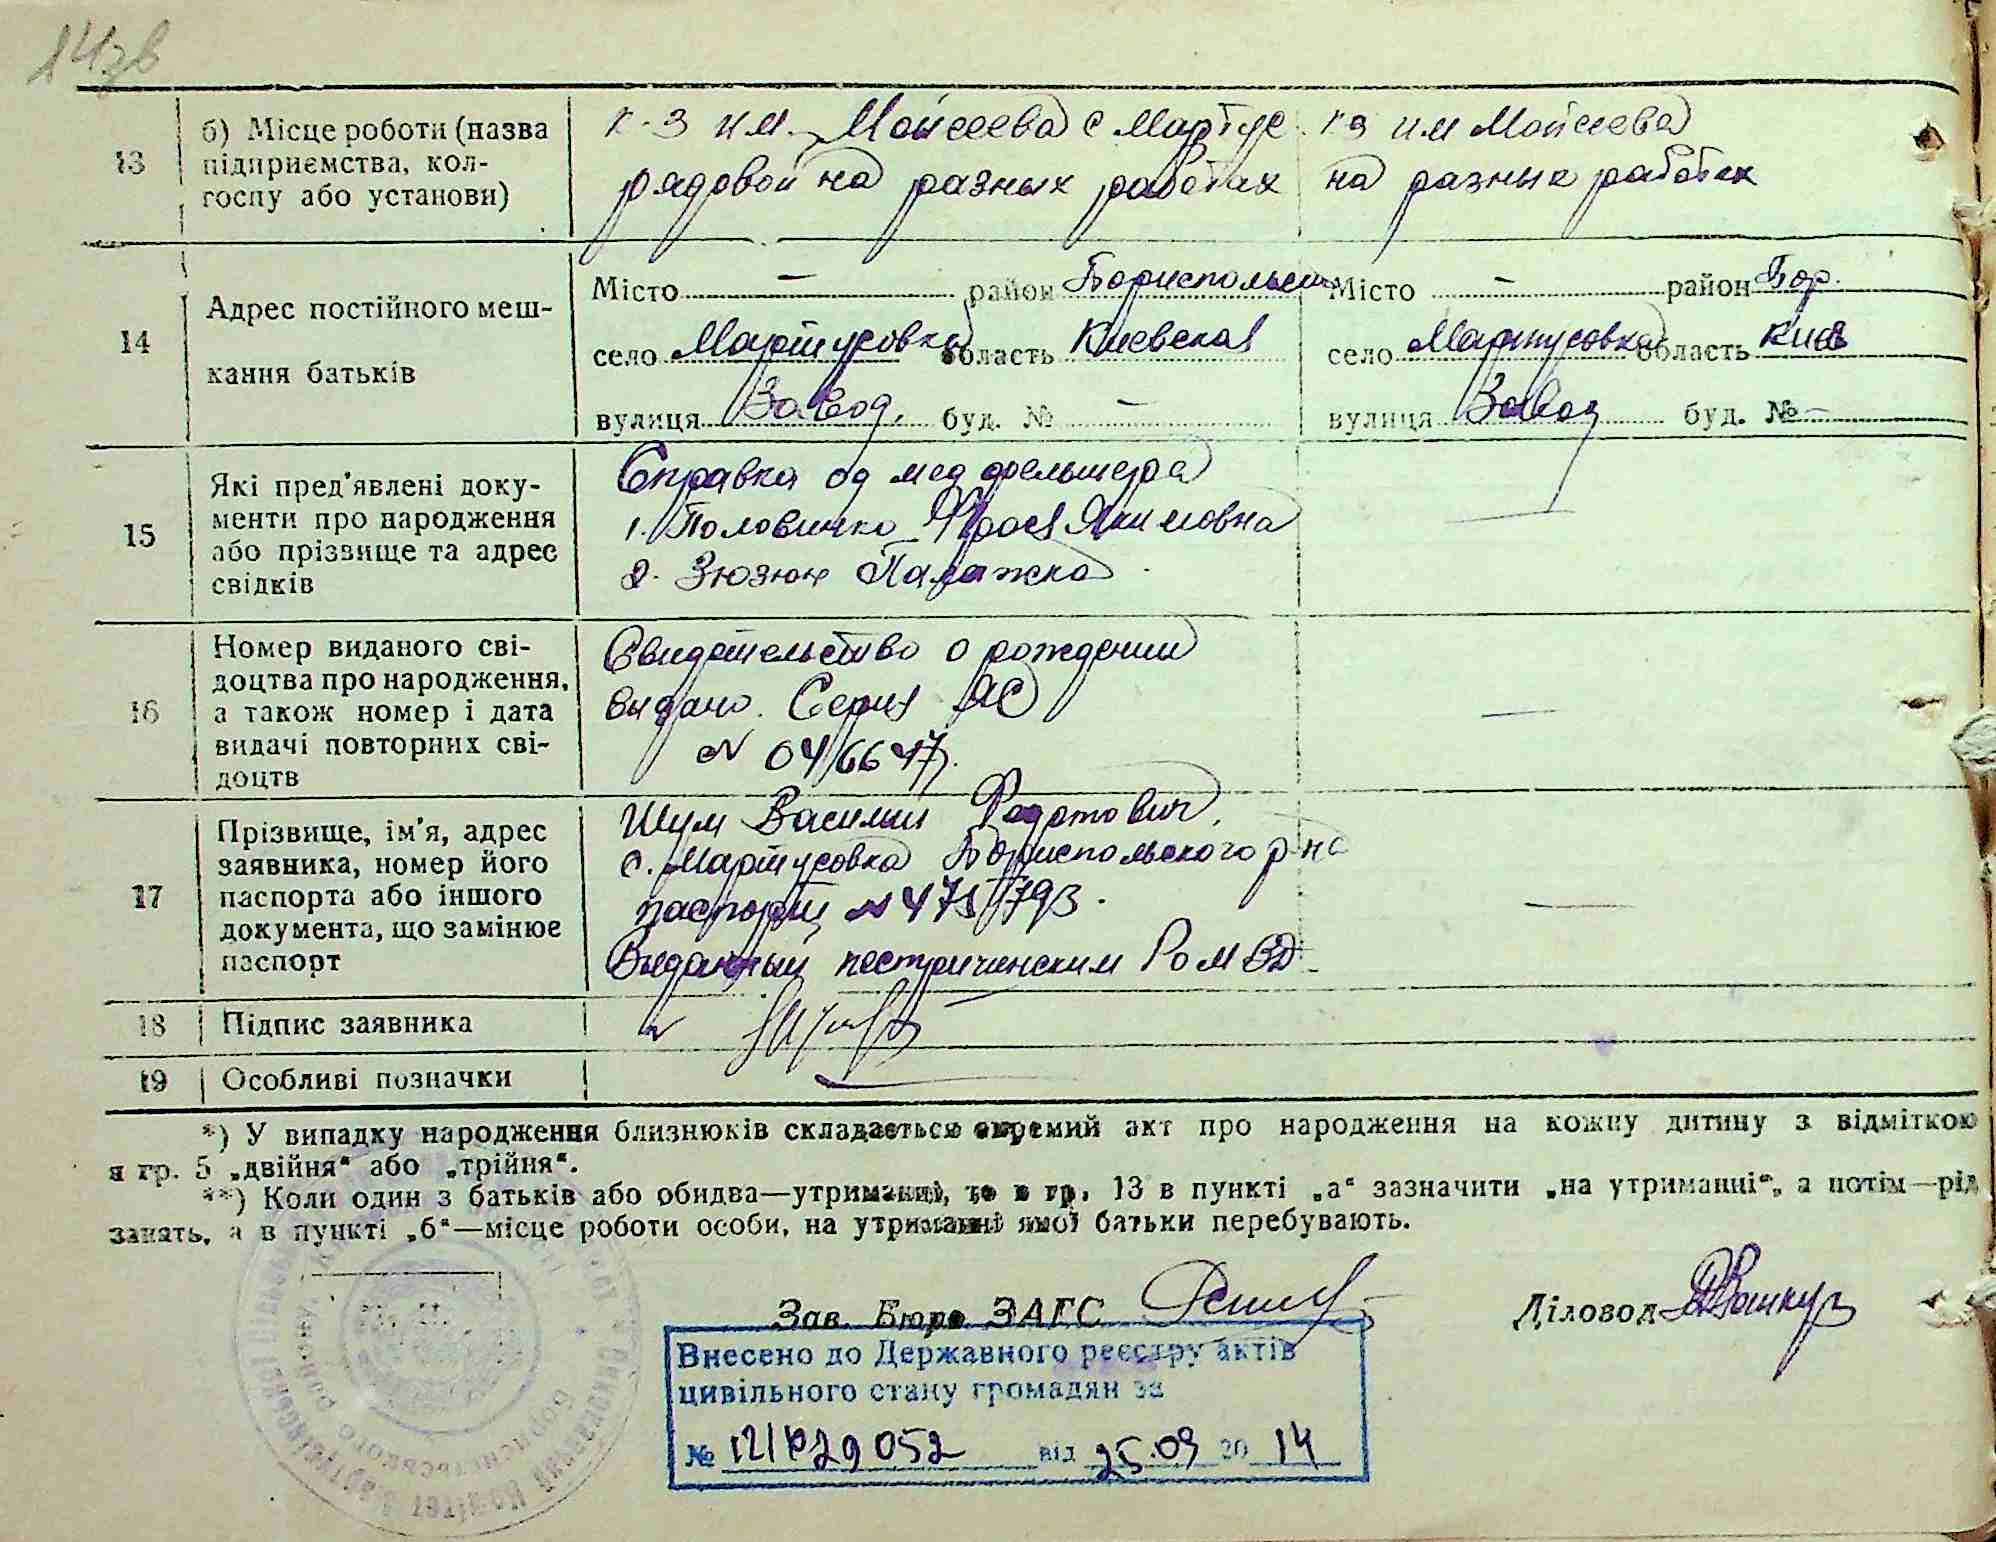 14зв
13
б) Місце роботи (назва
підприємства, кол-
госпу або установи)
к-з им. Мойсеева с Мартус.
рядовой на разных работах
кз им Мойсеева
на разных работах
14
Адрес постійного меш-
кання батьків
Місто — район Бориспольск
село Мартусовка область Киевская
вулиця Завод. буд. № —
Місто — район Бор.
село Мартусовка область Киев
вулиця Завод буд. № —
15
Які пред’явлені доку-
менти про народження
або прізвище та адрес
свідків
Справка од мед фельшера
1. Половинко Фрося Якимовна
2. Зюзюк Палажка
—
16
Номер виданого сві-
доцтва про народження,
а також номер і дата
видачі повторних сві-
доцтв
Свидетельство о рождении
видано. Серия ЯС
N 046647.
—
17
Прізвище, ім’я, адрес
заявника, номер його
паспорта або іншого
документа, що замінює
паспорт
Шум Василий Федотович,
с. Мартусовка Бориспольского р-на
паспорт N 471793.
Выданный пестричинским РОМВД.
—
18
Підпис заявника
19
Особливі позначки
—
*) У випадку народження близнюків складається окремий акт про народження на кожну дитину з відміткою
я гр. 5 „двійня“ або „трійня“.
**) Коли один з батьків або обидва—утриманці, то в гр. 13 в пункті „а“ зазначити „на утриманні“, а потім—рід
занять, а в пункті „б“—місце роботи особи, на утриманні якої батьки перебувають.
Зав. Бюро ЗАГС
Діловод
Внесено до Державного реєстру актів
цивільного стану громадян за
№ 121829052 від 25.09 2014